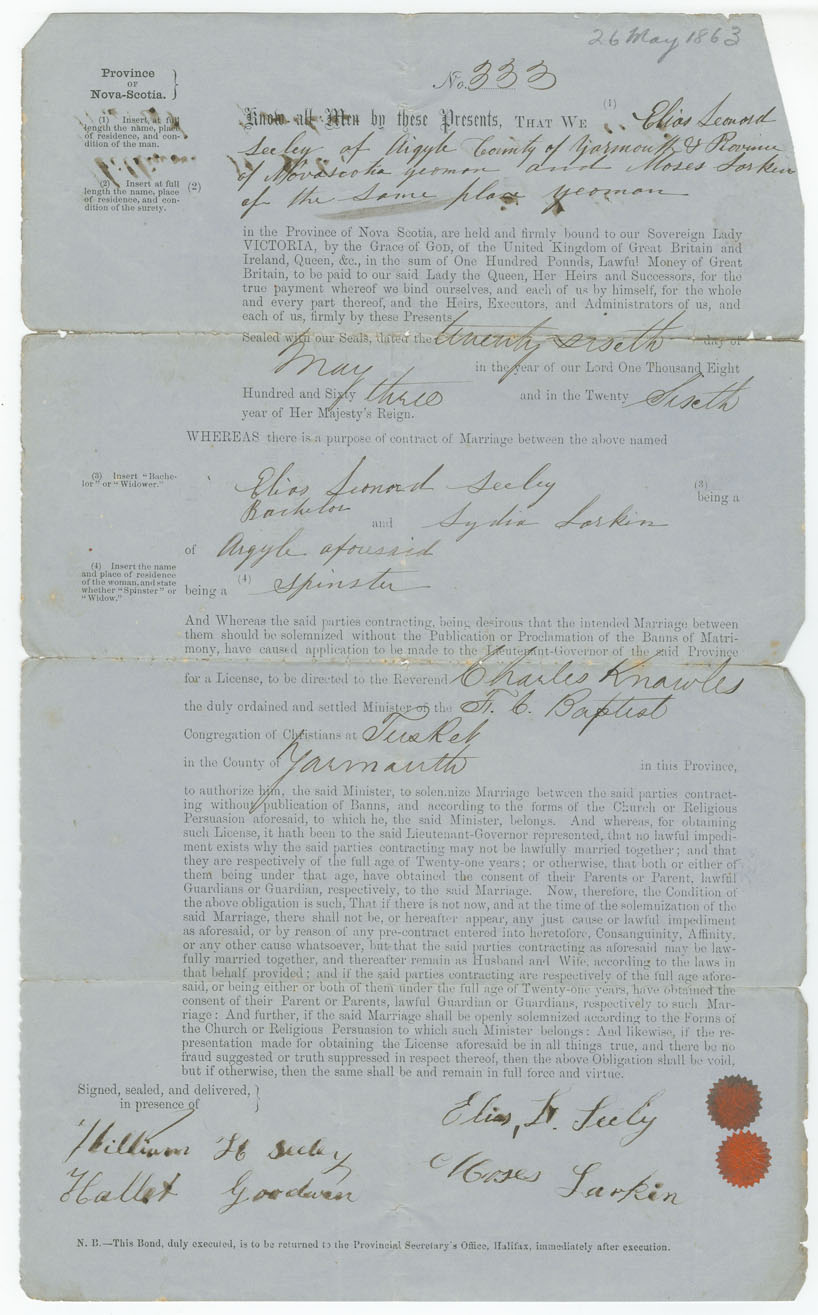 26 May 1863
Province
OF
Nova-Scotia.
No. 333
(1) Insert, at full
length the name, place
of residence, and con-
dition of the man.
Know all Men by these Presents, THAT WE (1) Elias Leonord
Seeley of Argyle County of Yarmouth & Province
of Novascotia yeoman and Moses Larken
(2) Insert at full
length the name, place
of residence, and con-
dition of the surety.
(2) of the same place yeoman
in the Province of Nova Scotia, are held and firmly bound to our Sovereign Lady
VICTORIA, by the Grace of GOD, of the United Kingdom of Great Britain and
Ireland, Queen, &c., in the sum of One Hundred Pounds, Lawful Money of Great
Britain, to be paid to our said Lady the Queen, Her Heirs and Successors, for the
true payment whereof we bind ourselves, and each of us by himself, for the whole
and every part thereof, and the Heirs, Executors, and Administrators of us, and
each of us, firmly by these Presents.
Sealed with our Seals, dated the twenty sixeth day of
May in the year of our Lord One Thousand Eight
Hundred and Sixty three and in the Twenty Sixeth
year of Her Majesty's Reign.
WHEREAS there is a purpose of contract of Marriage between the above named
(3) Insert "Bache-
lor" or "Widower."
Elias Leonord Seeley (3) being a
Bachelor and Lydia Larkin
of Argyle aforesaid
(4) Insert the name
and place of residence
of the woman, and state
whether "Spinster" or
"Widow."
being a (4) Spinster
And Whereas the said parties contracting, being desirous that the intended Marriage between
them should be solemnized without the Publication or Proclamation of the Banns of Matri-
mony, have caused application to be made to the Lieutenant-Governor of the said Province
for a License, to be directed to the Reverend Charles Knowles
the duly ordained and settled Minister of the F. C. Baptist
Congregation of Christians at Tusket
in the County of Yarmouth in this Province,
to authorize him, the said Minister, to solemnize Marriage between the said parties contract-
ing without publication of Banns, and according to the forms of the Church or Religious
Persuasion aforesaid, to which he, the said Minister, belongs. And whereas, for obtaining
such License, it hath been to the said Lieutenant-Governor represented, that no lawful impedi-
ment exists why the said parties contracting may not be lawfully married together; and that
they are respectively of the full age of Twenty-one years; or otherwise, that both or either of
them being under that age, have obtained the consent of their Parents or Parent, lawful
Guardians or Guardian, respectively, to the said Marriage. Now, therefore, the Condition of
the above obligation is such, That if there is not now, and at the time of the solemnization of the
said Marriage, there shall not be, or hereafter appear, any just cause or lawful impediment
as aforesaid, or by reason of any pre-contract entered into heretofore, Consanguinity, Affinity,
or any other cause whatsoever, but that the said parties contracting as aforesaid may be law-
fully married together, and thereafter remain as Husband and Wife, according to the laws in
that behalf provided; and if the said parties contracting are respectively of the full age afore-
said, or being either or both of them under the full age of Twenty-one years, have obtained the
consent of their Parent or Parents, lawful Guardian or Guardians, respectively to such Mar-
riage: And further, if the said Marriage shall be openly solemnized according to the Forms of
the Church or Religious Persuasion to which such Minister belongs: And likewise, if the re-
presentation made for obtaining the License aforesaid be in all things true, and there be no
fraud suggested or truth suppressed in respect thereof, then the above Obligation shall be void,
but if otherwise, then the same shall be and remain in full force and virtue.
Signed, sealed, and delivered,
in presence of
Elias, L. Seely
William H Seeley
Moses Larkin
Hallet Goodwin
N. B.—This Bond, duly executed, is to be returned to the Provincial Secretary's Office, Halifax, immediately after execution.